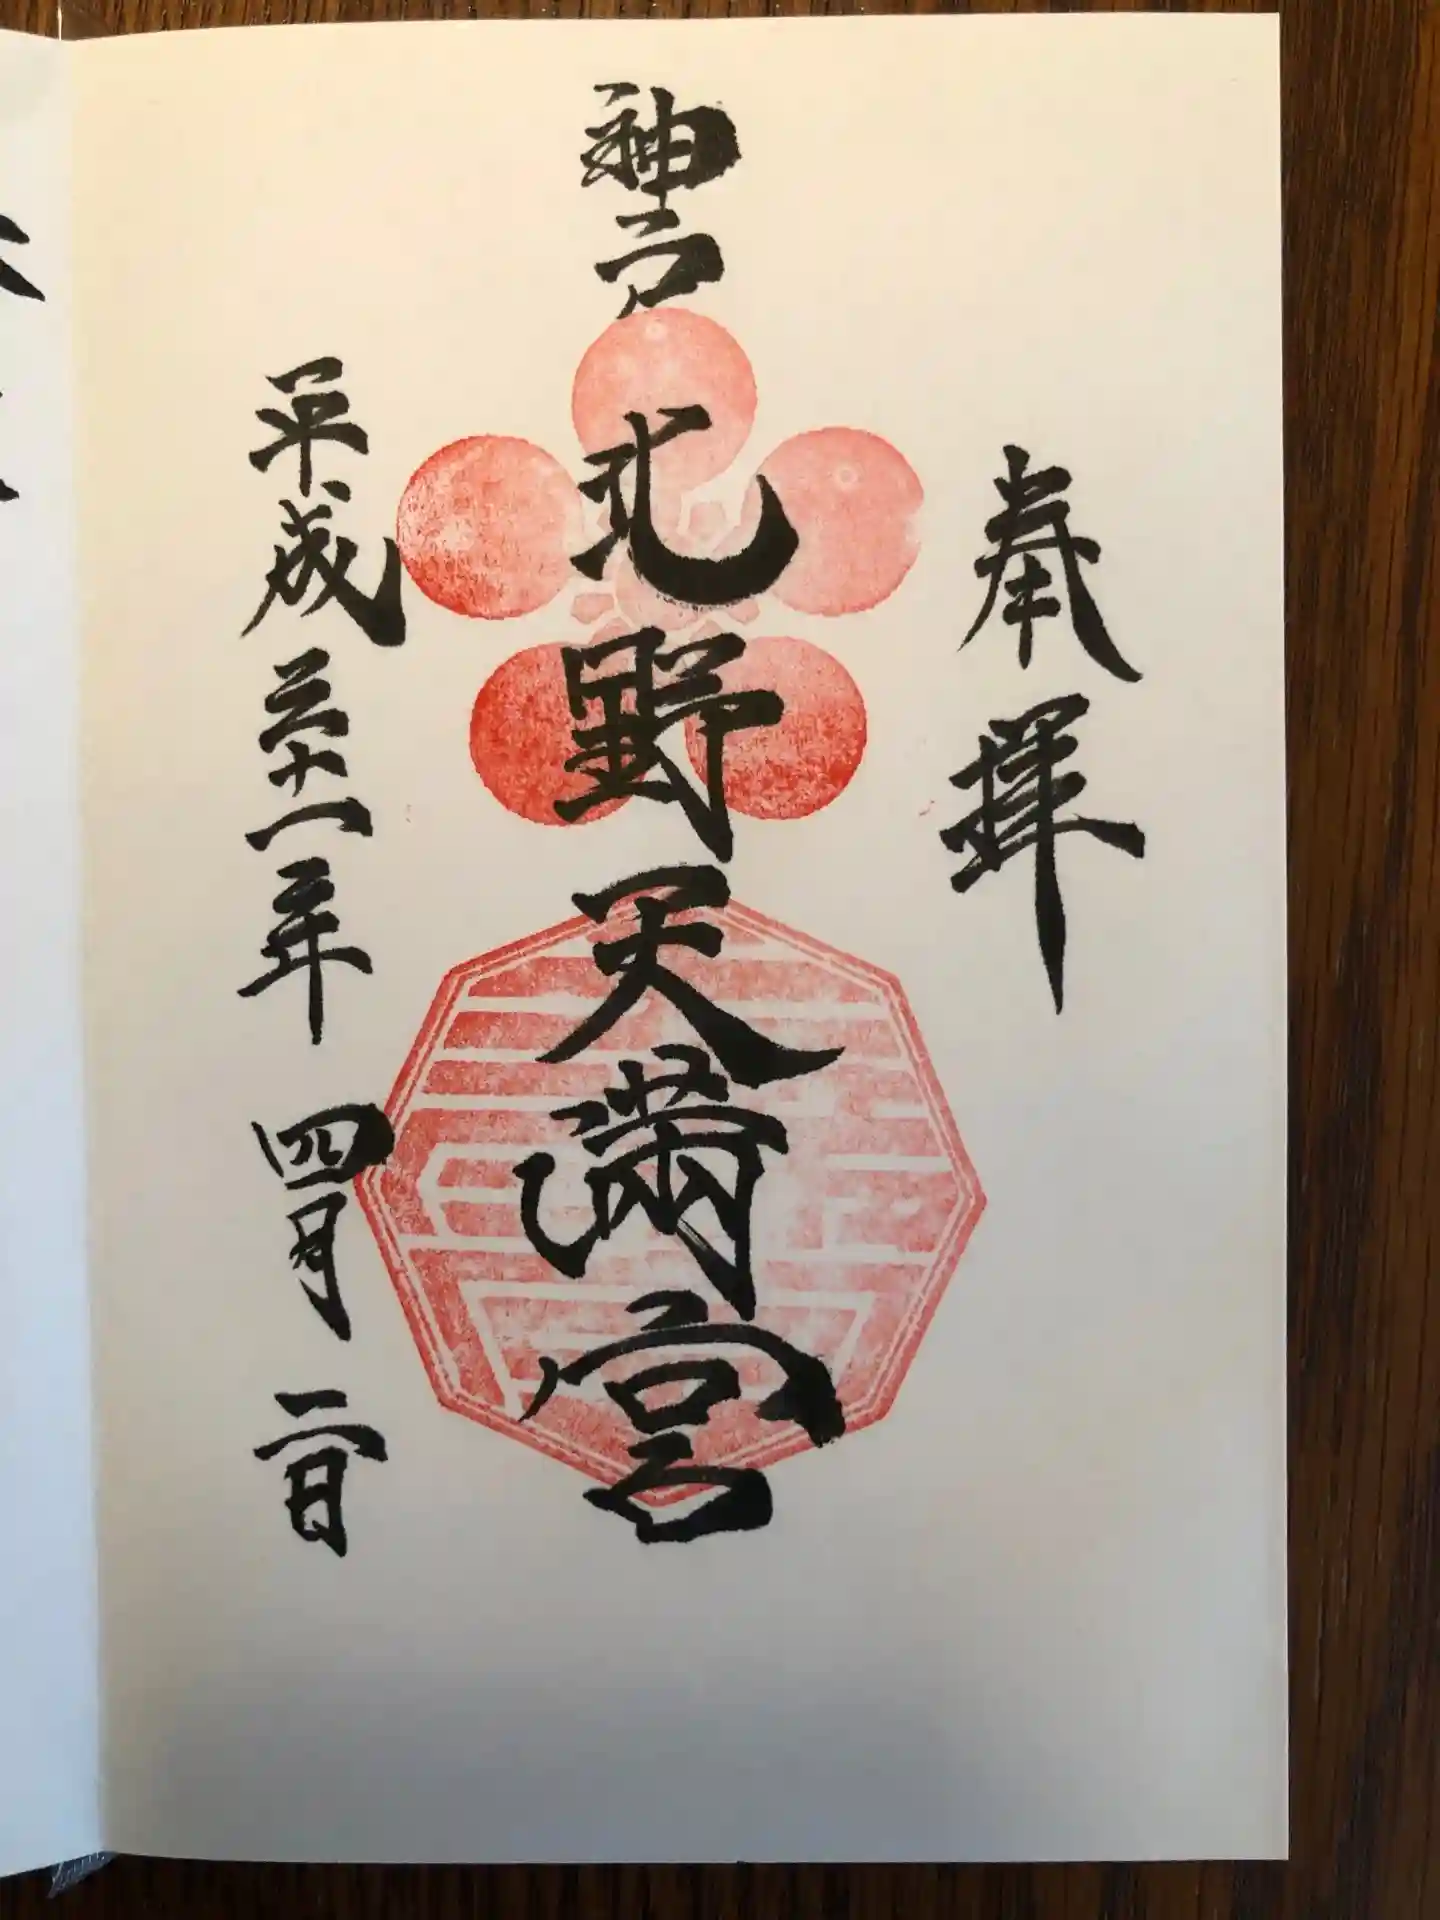 奉拝
神戸
北野天満宮
平成三十一年 四月 二日